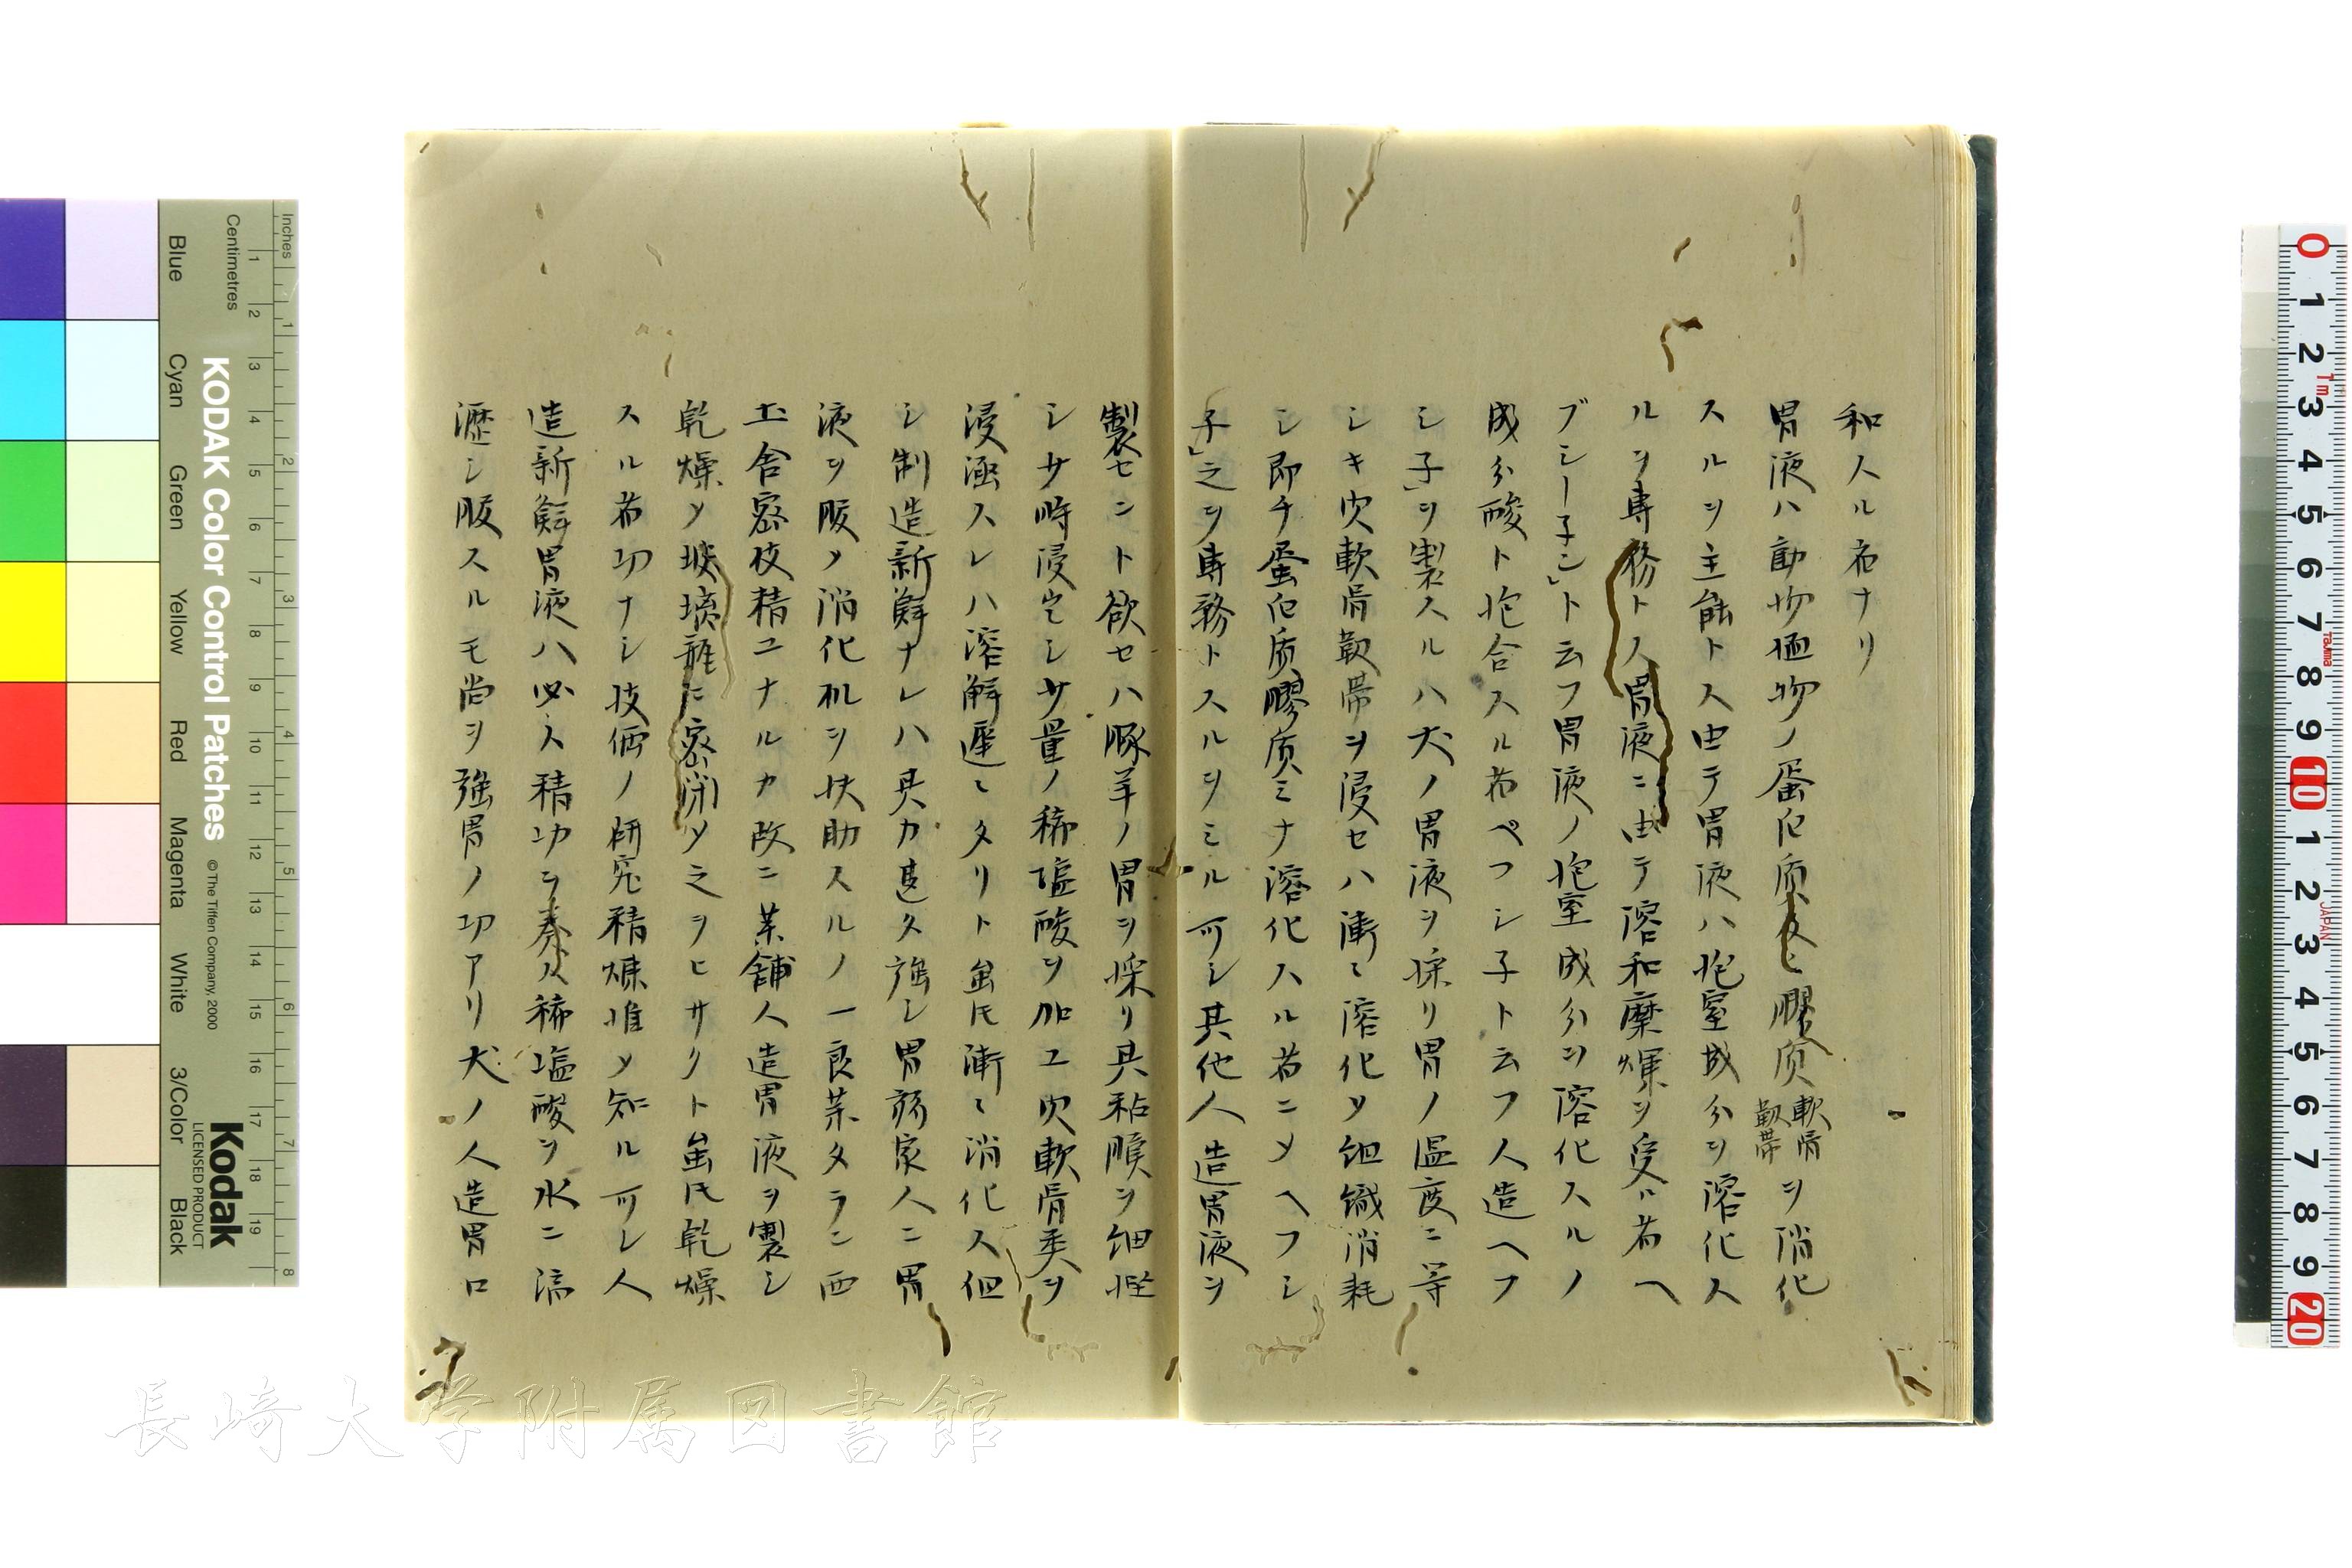 和スル者ナリ
胃液ハ動物植物ノ蛋白质及ヒ膠质軟骨靱帯ヲ消化
スルヲ主能トス由テ胃液ハ胞室成分ヲ溶化ス
ルヲ専務トス胃液ニ由テ溶和糜爛ヲ受ル者ヘ
プシー子ン」ト云フ胃液ノ胞室成分ヲ溶化スルノ
成分酸ト抱合スル者ペフシ子ト云フ人造ヘフ
シ子」ヲ製スルハ犬ノ胃液ヲ採リ胃ノ温度ニ等
シキ火軟骨靱帯ヲ浸セハ漸々溶化シテ组織消耗
シ即チ蛋白质膠质ミナ溶化スル者ニシテヘフシ
子」之ヲ専務トスルヲミル可シ其他人造胃液ヲ
製セント欲セハ豚羊ノ胃ヲ採リ其粘膜ヲ细
シ少時浸シ少量ノ稀塩酸ヲ加エ火軟骨类ヲ
浸スレハ溶解遅々タリト虽𪜈漸々消化ス但
シ制造新鮮ナレハ其力甚タ强シ胃弱家人ニ胃
液ヲ服シテ消化机ヲ扶助スルノ一良薬タラン西
土舎密伎精ユナルカ故ニ薬舗人造胃液ヲ製シ
乾燥シテ玻璃瓶ニ密閉シテ之ヲヒサクト虽𪜈乾燥
スル者功ナシ技倆ノ研究精煉惟シテ知ル可シ人
造新鮮胃液ハ必ス精功ヲ奏ス稀塩酸ヲ水ニ滴
瀝シ服スルモ尚ヲ强胃ノ功アリ犬ノ人造胃口
KODAK Color Control Patches
© The Tiffen Company, 2000
Kodak
LICENSED PRODUCT
Inches
Centimetres
Blue
Cyan
Green
Yellow
Red
Magenta
White
3/Color
Black
長崎大学附属図書館